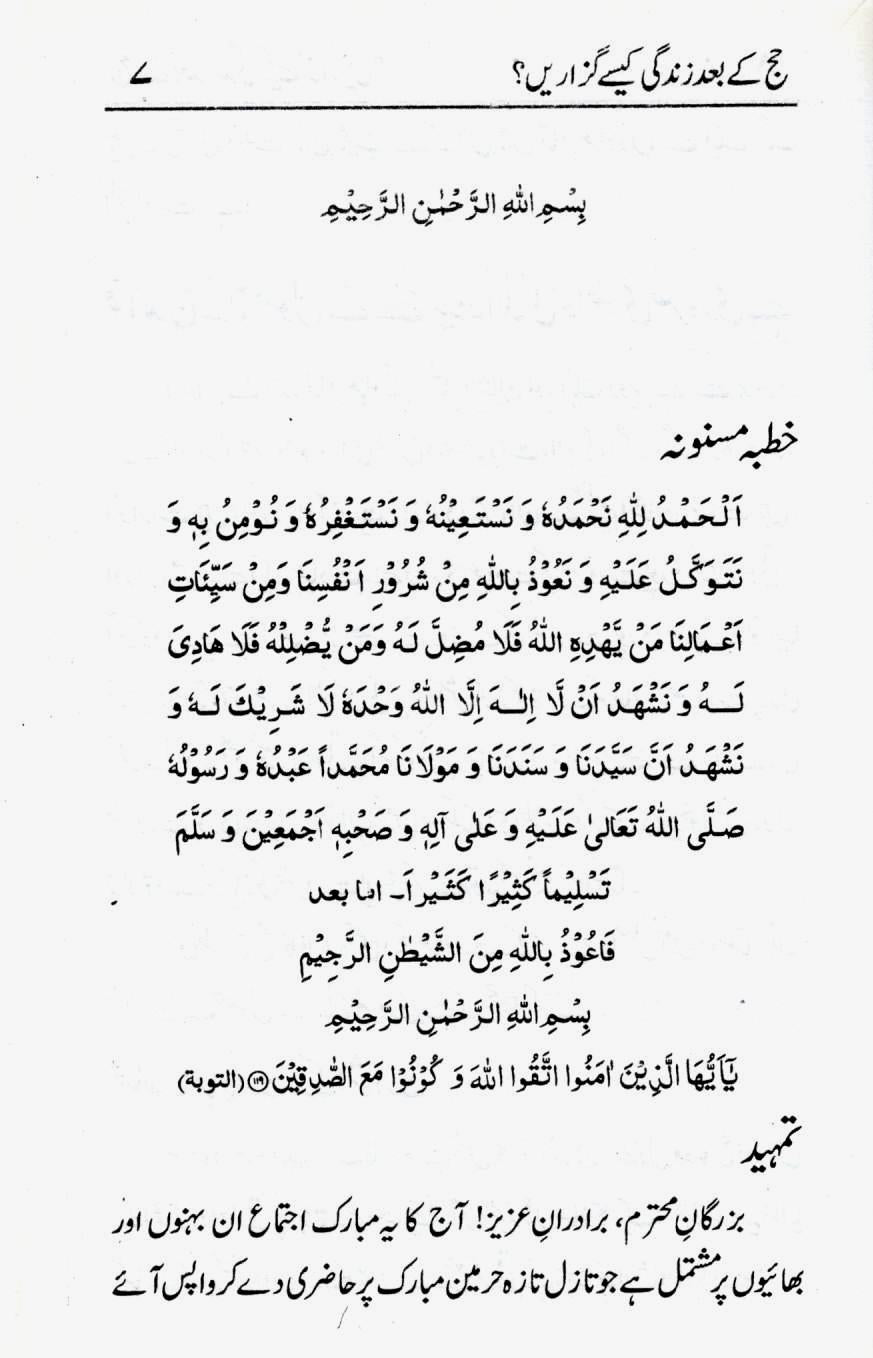 حج کے بعد زندگی کیسے گزاریں؟ ۷
بِسْمِ اللهِ الرَّحْمٰنِ الرَّحِيْمِ
خطبہ مسنونہ
اَلْحَمْدُ لِلّٰهِ نَحْمَدُهٗ وَ نَسْتَعِيْنُهٗ وَ نَسْتَغْفِرُهٗ وَ نُوْمِنُ بِهٖ وَ
نَتَوَكَّلُ عَلَيْهِ وَ نَعُوْذُ بِاللهِ مِنْ شُرُوْرِ اَنْفُسِنَا وَمِنْ سَيِّئَاتِ
اَعْمَالِنَا مَنْ يَّهْدِهِ اللهُ فَلَا مُضِلَّ لَهٗ وَمَنْ يُّضْلِلْهُ فَلَا هَادِىَ
لَهٗ وَ نَشْهَدُ اَنْ لَّا اِلٰهَ اِلَّا اللهُ وَحْدَهٗ لَا شَرِيْكَ لَهٗ وَ
نَشْهَدُ اَنَّ سَيَّدَنَا وَ سَنَدَنَا وَ مَوْلَانَا مُحَمَّداً عَبْدُهٗ وَ رَسُوْلُهٗ
صَلَّى اللهُ تَعَالىٰ عَلَيْهِ وَ عَلٰى آلِهٖ وَ صَحْبِهٖ اَجْمَعِيْنَ وَ سَلَّمَ
تَسْلِيْماً كَثِيْرًا كَثَيْراَ۔ اما بعد
فَاعُوْذُ بِاللهِ مِنَ الشَّيْطٰنِ الرَّجِيْمِ
بِسْمِ اللهِ الرَّحْمٰنِ الرَّحِيْمِ
يٰٓاَيُّهَا الَّذِيْنَ اٰمَنُوا اتَّقُوا اللهَ وَ كُوْنُوْا مَعَ الصّٰدِقِيْنَ ﴿۱۱۹﴾ (التوبة)
تمہید
بزرگانِ محترم، برادرانِ عزیز! آج کا یہ مبارک اجتماع ان بہنوں اور
بھائیوں پر مشتمل ہے جو تازل تازہ حرمین مبارک پر حاضری دے کر واپس آئے